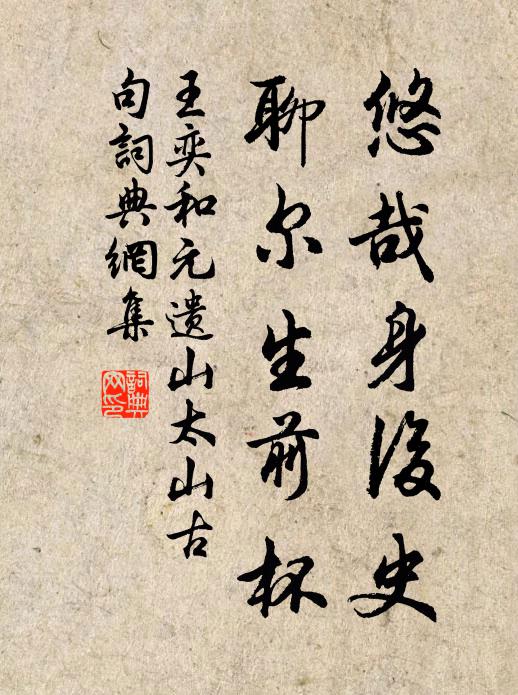 悠哉身後史
聊尔生前杯
王奕和元遗山太山古
句詞典網集
詞典網印